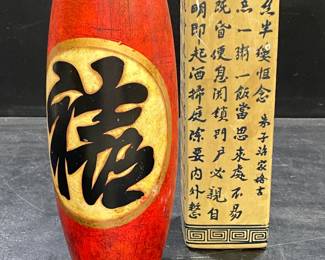 明即起洒掃庭除要內外整
既昏便息関鎖門户必親自
点一粥一飯當思來處不易
半縷恒念
朱子治家格言